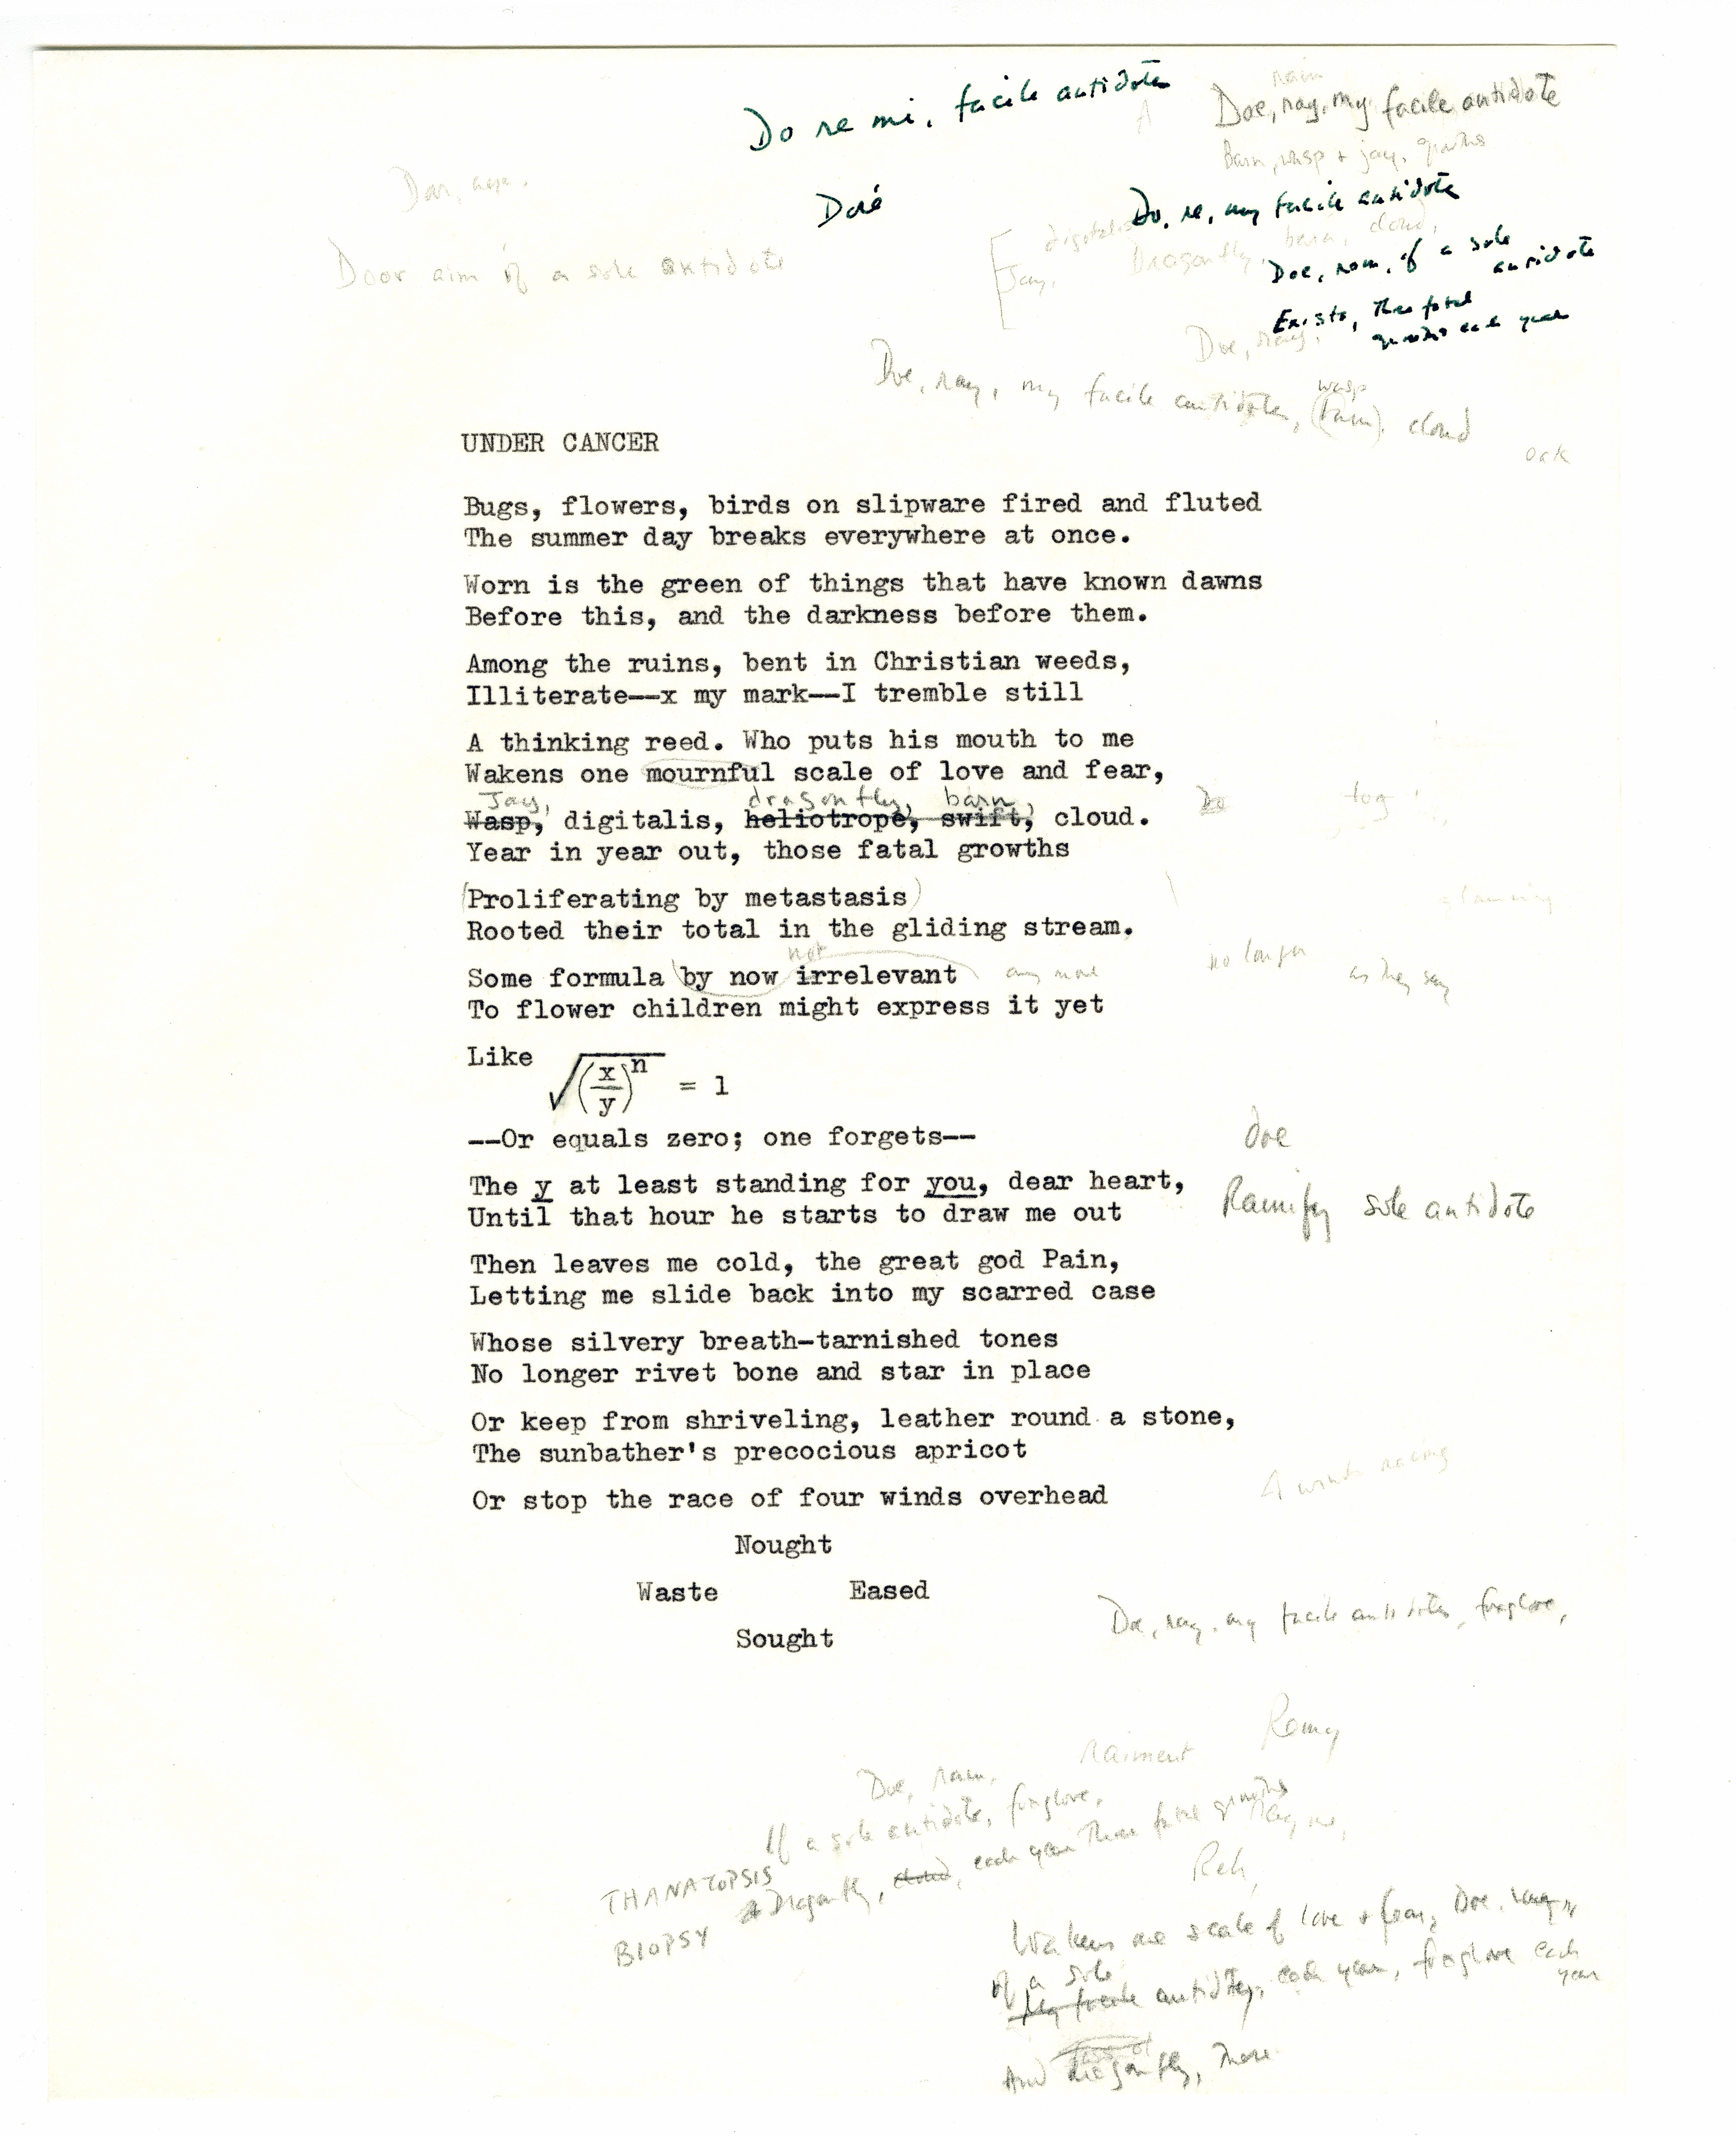 Do re mi, facile antidote
rain
Doe, ray, my facile antidote
Barn, wasp + jay, growths
Doré
Do, re, my facile antidote
digitalis
Dragonfly, barn, cloud,
Jay,
Door aim of a sole antidote
Doe, ram, of a sole
antidote
Exists, These fatal
growths each year
Doe, ray,
Doe, ray, my facile antidotes, (barn), cloud
wasp
oak
UNDER CANCER
Bugs, flowers, birds on slipware fired and fluted
The summer day breaks everywhere at once.
Worn is the green of things that have known dawns
Before this, and the darkness before them.
Among the ruins, bent in Christian weeds,
Illiterate--x my mark--I tremble still
A thinking reed. Who puts his mouth to me
Wakens one mournful scale of love and fear,
Jay, dragonfly, barn,
Wasp, digitalis, heliotrope, swift, cloud.
Year in year out, those fatal growths
(Proliferating by metastasis)
Rooted their total in the gliding stream.
not
Some formula by now irrelevant any more no longer as they say
To flower children might express it yet
Like √(x/y)^n = 1
--Or equals zero; one forgets--
Doe
The y at least standing for you, dear heart,
Ramify sole antidote
Until that hour he starts to draw me out
Then leaves me cold, the great god Pain,
Letting me slide back into my scarred case
Whose silvery breath-tarnished tones
No longer rivet bone and star in place
Or keep from shriveling, leather round a stone,
The sunbather's precocious apricot
4 winds racing
Or stop the race of four winds overhead
Nought
Waste Eased
Sought
Doe, ray, my facile antidotes, foxglove,
Remy
raiment
Doe, ram,
If a sole antidote, foxglove,
Dragonfly, cloud, each year These fatal growths
Ray me,
Reh,
THANATOPSIS
BIOPSY
Wakens one scale of love + fear, Doe, ray,
of a sole
My facile antidote, each year, foxglove each
year
And dragonfly, these